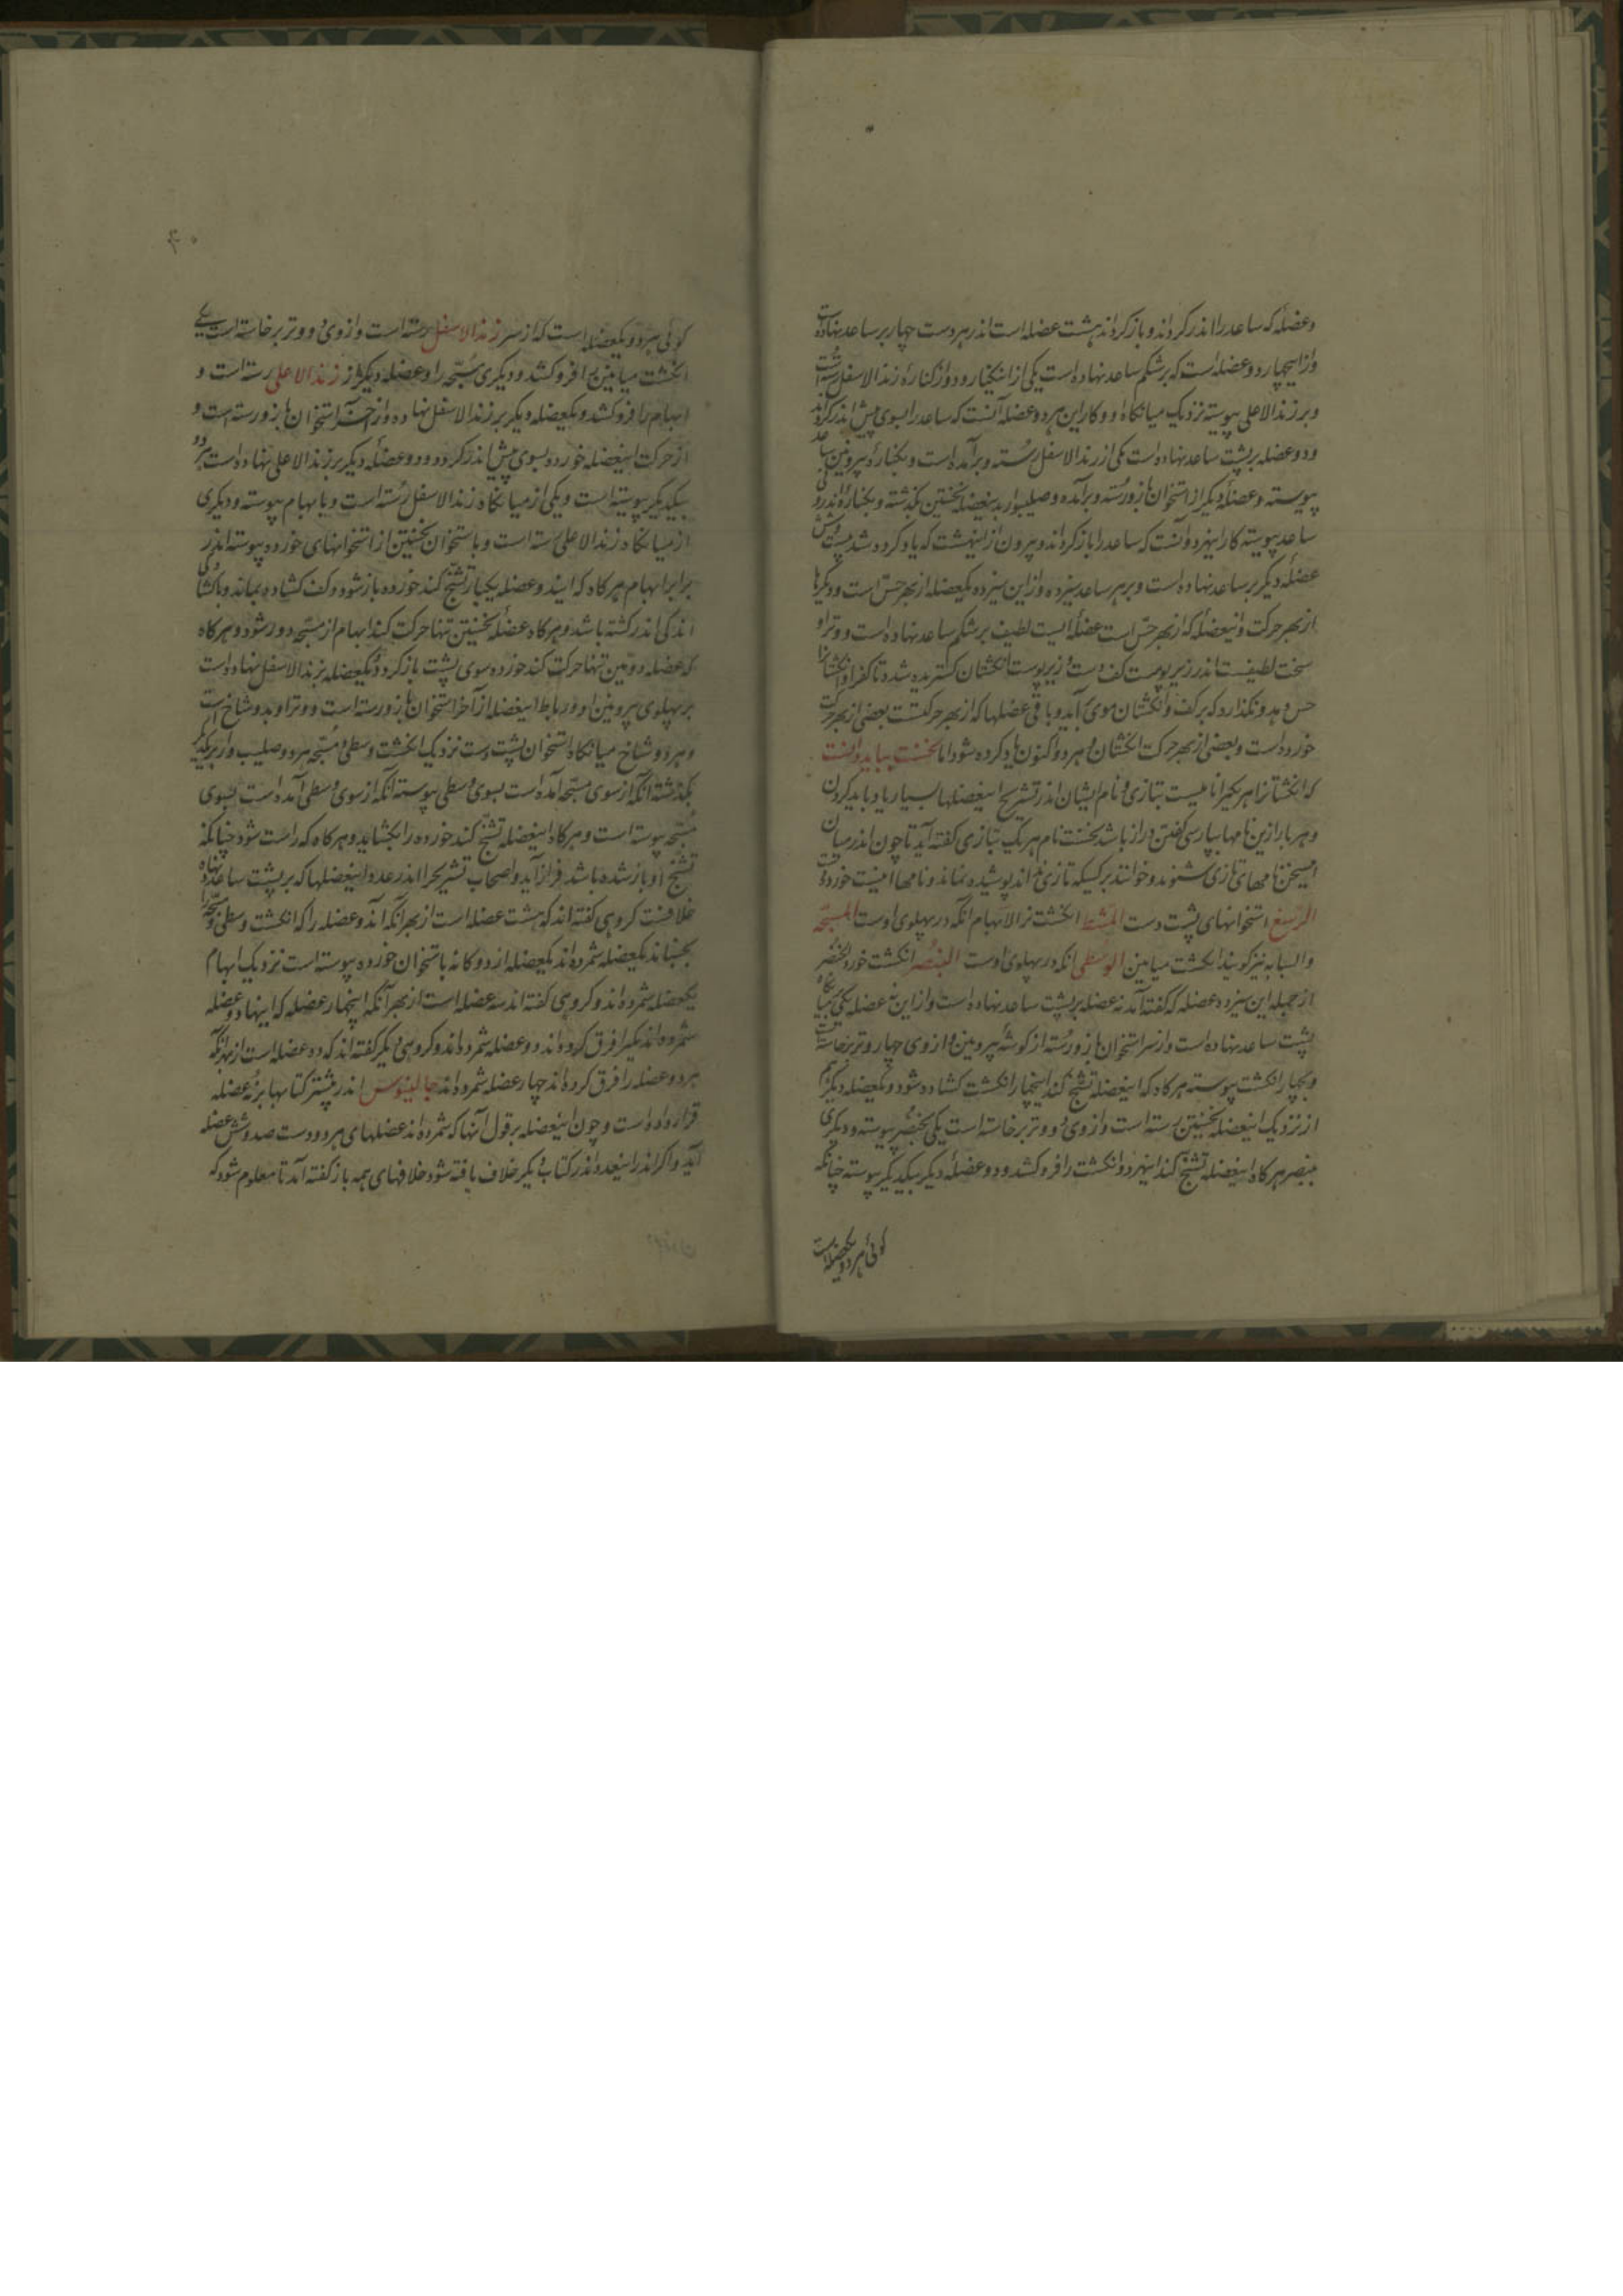 و عضله که ساعد را اندر کرداند و باز کرداند هشت عضله است اندر هر دست چهار بر ساعد نهاده است
و ازین چهار دو عضله است که بر شکم ساعد نهاده است یکی از و دو از کنارهٔ زند الاسفل رسته است
و بر زند الاعلی پیوسته نزدیک میانکاه او و کار این هر دو عضله آنست که ساعد را بسوی پیش اندر کرداند
و دو عضله بر پشت ساعد نهاده است یکی از زند الاسفل رسته و برآمده است و بکنارهٔ بیرونین ساعد
پیوسته و عضلهٔ دیکر از استخوان بازو رسته و برآمده و صلیب وار بدین عضلهٔ نخستین بکذشته و بکنارهٔ اندرونی
ساعد پیوسته کار اینهر دو آنست که ساعد را باز کرداند و بیرون ازینهشت که یاد کرده شد بیست و شش
عضلهٔ دیکر بر ساعد نهاده است و بر هر ساعد سیزده و ازین سیزده یکعضله از بهر حسّ است و دیکرها
از بهر حرکت و اینعضله که از بهر حسّ است عضلهٔ ایست لطیف بر شکم ساعد نهاده است و وتر او
سخت لطیفست اندر زیر پوست کف دست و زیر پوست انکشتان کسترده شد تا کف او انکشتانرا
حس دهد و نکذارد که بر کف و انکشتان موی برآید و باقی عضلها که از بهر حرکتست بعضی از بهر حرکت
خورده است و بعضی از بهر حرکت انکشتان و هر دو اکنون یاد کرده شود اما نخست بباید دانست
که انکشتانرا هر یکیرا نامیست بتازی و نام ایشان اندر تشریح اینعضلها بسیار یاد باید کردن
و هر بار ازین نامها بپارسی کفتن دراز باشد نخست نام هر یک بتازی کفته آید تا چون اندر میان
سخن نامهای تازی شنوند و خوانند بر کسیکه تازی نداند پوشیده نماند و نامها اینست خورده
الرسغ استخوانهای پشت دست المشط انکشت نر الابهام انکه در پهلوی اوست المسبّحه
و السبابه نیز کویند انکشت میانین الوسطی انکه در پهلوی اوست البنصر انکشت خورد الخنصر
از جمله این سیزده عضله که کفته آمد نه عضله بر پشت ساعد نهاده است و ازین نه عضله یکی بمیانکاه
پشت ساعد نهاده است و از سر استخوان بازو رسته از کوشهٔ بیرونین و از وی چهار وتر برخاسته است
و بچهار انکشت پیوسته هر کاه که اینعضله تشنّج کند اینچهار انکشت کشاده شود و یکعضله دیکر هم
از نزدیک اینعضله نخستین رسته است و از وی دو وتر برخاسته است یکی بخنصر پیوسته و دیکری
ببنصر هر کاه اینعضله تشنّج کند اینهر دو انکشت را فرو کشد و دو عضلهٔ دیکر بیکدیکر پیوسته چنانکه
کوئی هر دو یکعضله است
کوئی هر دو یکعضله است که از سر زند الاسفل رسته است و از وی دو وتر برخاسته است یکی
انکشت میانین را فرو کشد و دیکری مسبّحه را و عضله دیکر از زند الاعلی رسته است و
ابهام را فرو کشد و یکعضله دیکر بر زند الاسفل نهاده و از استخوان بازو رسته است و
از حرکت اینعضله خورده بسوی پیش اندر کردد و دو عضلهٔ دیکر بر زند الاعلی نهاده است هر دو
بیکدیکر پیوسته است و یکی از میانکاه زند الاسفل رسته است و بابهام پیوسته و دیکری
از میانکاه زند الاعلی رسته است و باستخوان نخستین از استخوانهای خورده پیوسته اندر
برابر ابهام هر کاه که ایندو عضله یکبار تشنّج کند خورده باز شود و کف کشاده بماند و با کشادکی
اندکی اندر کشته باشد و هر کاه عضلهٔ نخستین تنها حرکت کند ابهام از مسبّحه دور شود و هر کاه
که عضله دومین تنها حرکت کند خورده سوی پشت باز کردد و یکعضله بر زند الاسفل نهاده است
بر پهلوی بیرونین او و رباط اینعضله از آخر استخوان بازو رسته است و وتر او بدو شاخ است
و هر دو شاخ میانکاه استخوان پشت دست نزدیک انکشت وسطی و مسبّحه هر دو صلیب وار بر یکدیکر
بکذشته آنکه از سوی مسبّحه آمده است بسوی وسطی پیوسته انکه از سوی وسطی آمده است بسوی
مسبّحه پیوسته است و هر کاه اینعضله تشنّج کند خورده را بکشاید و هر کاه که راست شود چنانکه
تشنّج او باز شده باشد فراز آید و اصحاب تشریح را اندر عدد اینعضلها که بر پشت ساعد نهاده
خلافست کروهی کفته اند که هشت عضله است از بهر آنکه آندو عضله را که انکشت وسطی و مسبّحه را
بجنباند یکعضله شمرده اند یکعضله از دوکانه باستخوان خورده پیوسته است نزدیک ابهام
یکعضله شمرده اند و کروهی کفته اند سه عضله است از بهر آنکه اینچهار عضله که اینها دو عضله
شمرده اند یکیرا فرق کرده اند دو عضله شمرده اند و کروهی دیکر کفته اند که ده عضله است از بهر آنکه
هر دو عضله را فرق کرده اند چهار عضله شمرده اند جالینوس اندر بیشتر کتابها بر نه عضله
قرار داده است و چون اینعضله بر قول آنها که شمرده اند عضلهای هر دو دست صد و شش عضله
آید و اکر اندر اینعدد اندر کتاب دیکر خلاف یافته شود خلافهای همه باز کفته آمد تا معلوم شود که